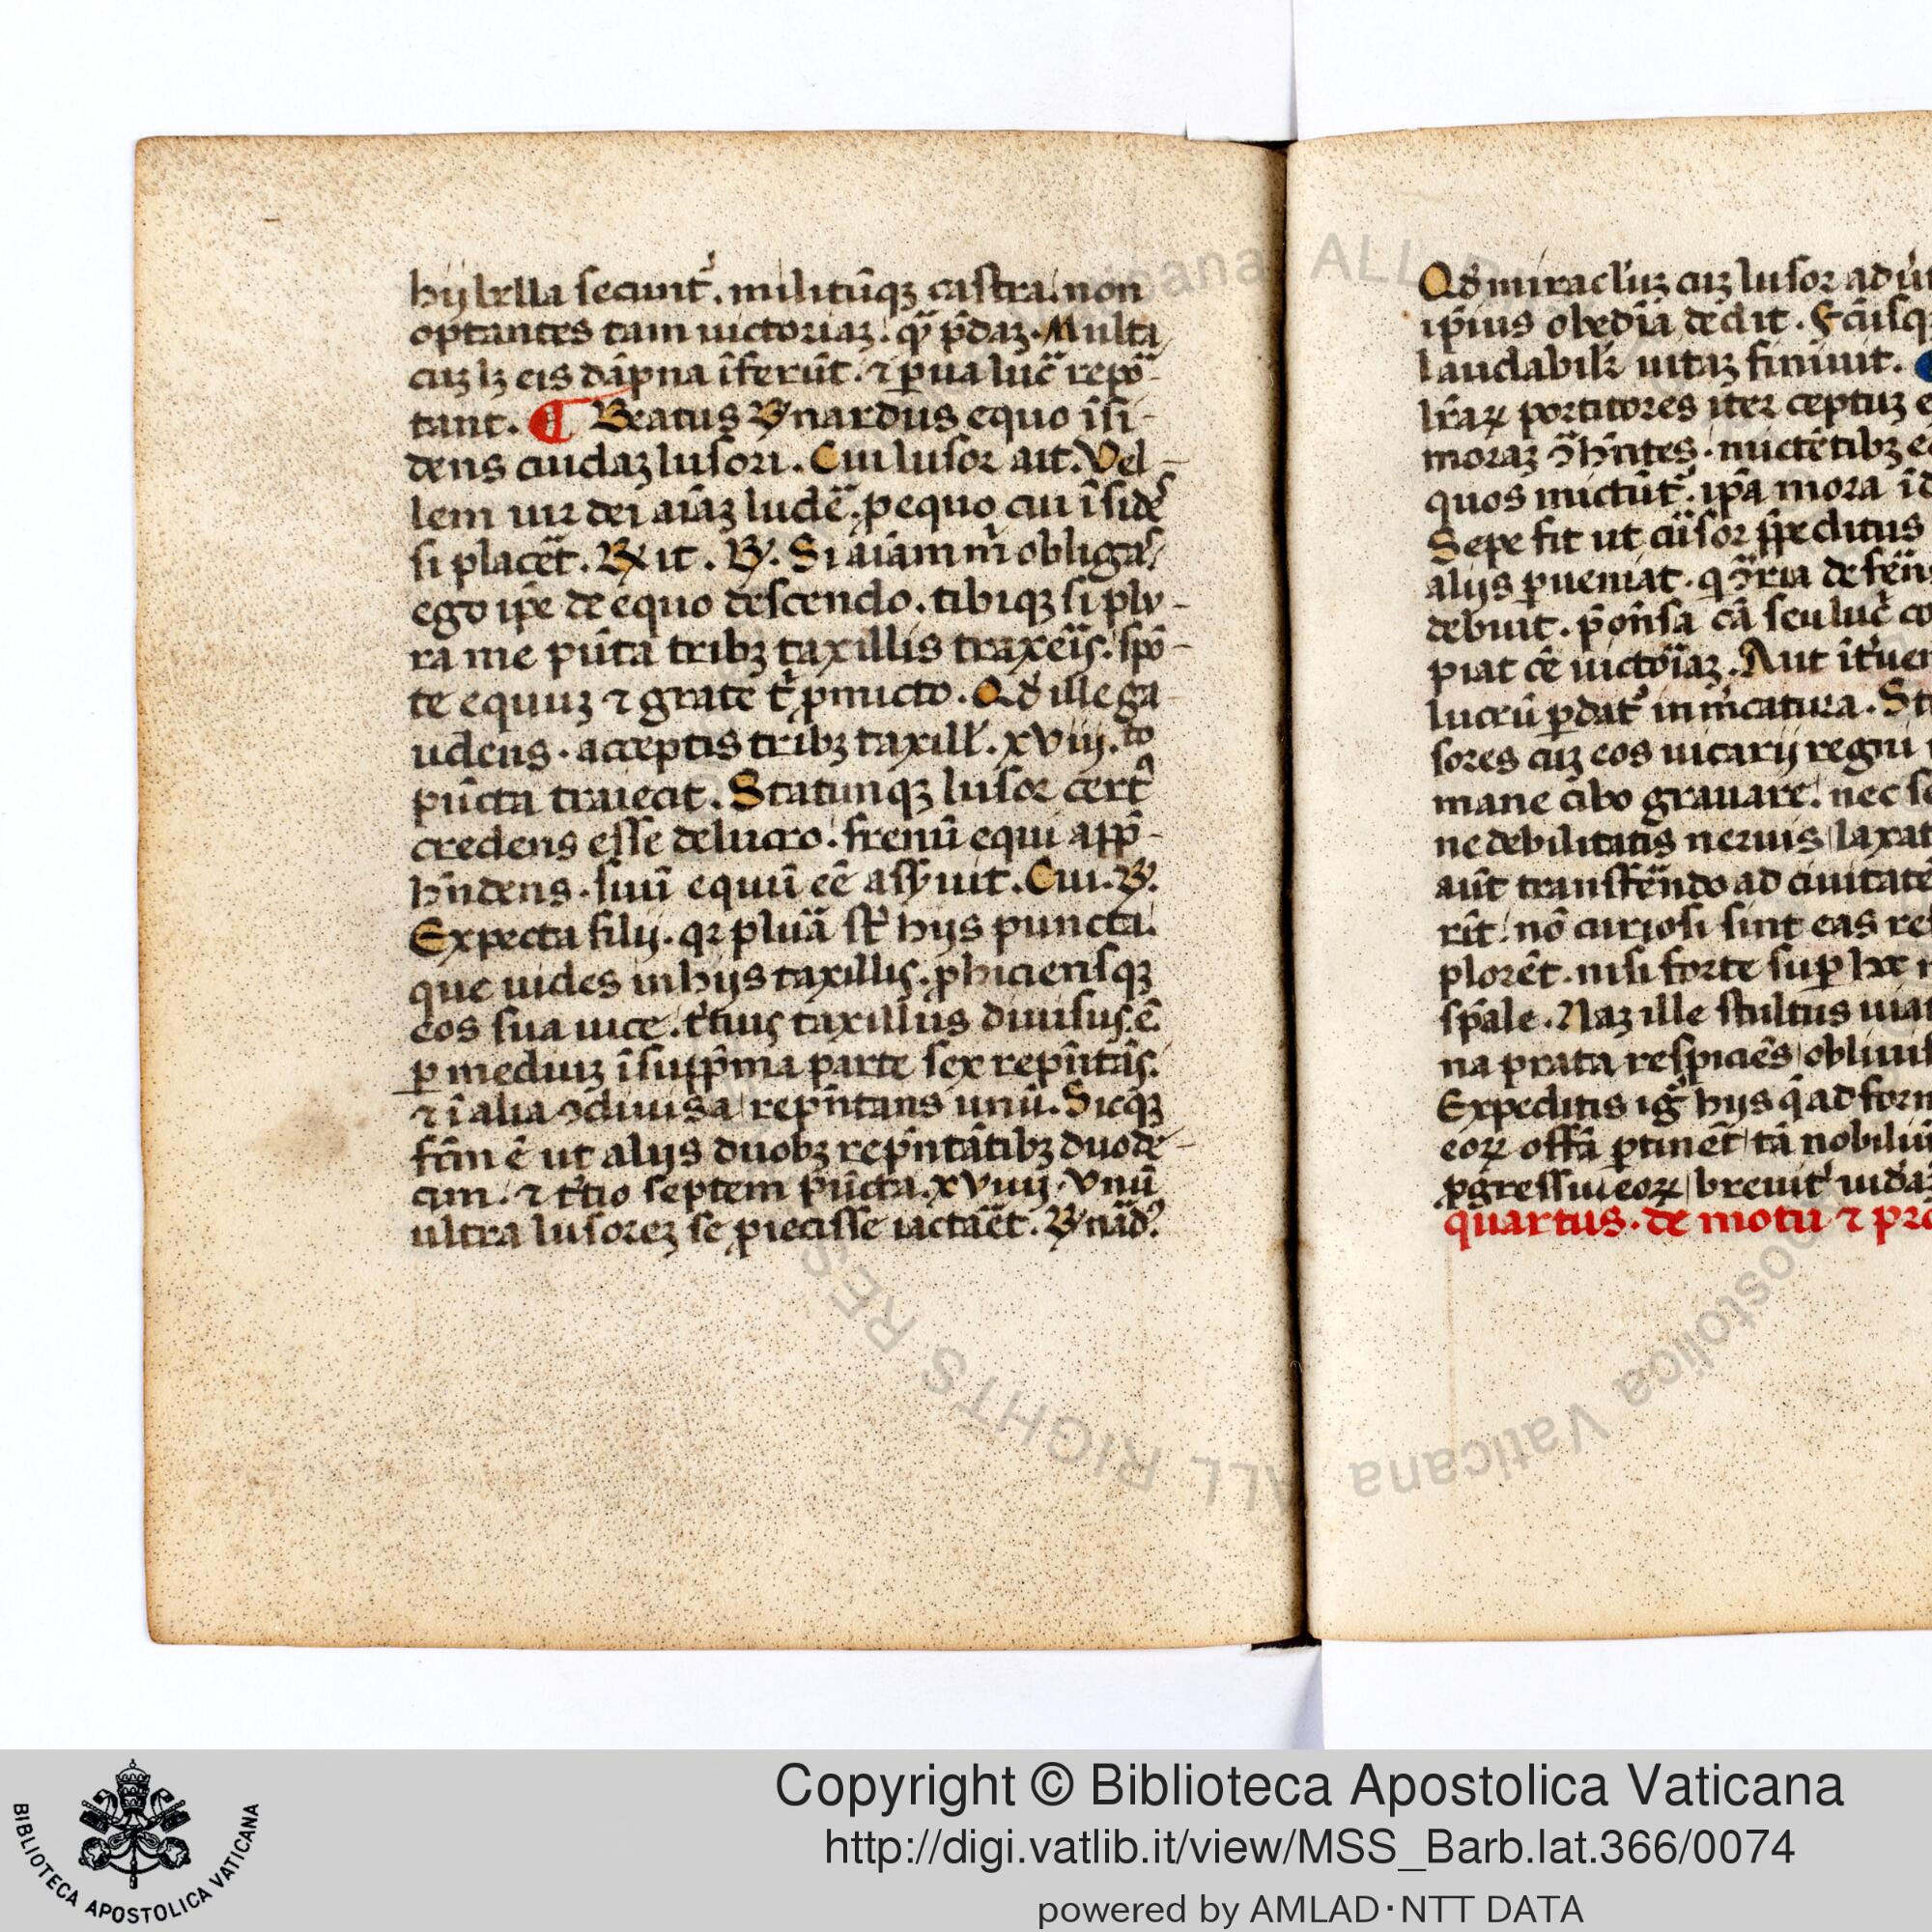 hij bella secunt᷑. militū̄qꝫ castra. non
optantes tam uictoriaꝫ. qȝ p̄daꝫ. Multa
cuꝫ lꝫ eis dāpna īferūt. ⁊ ꝑua luc̄ repo᷑-
tant. ¶ Beatus B̓nardus equo īsi-
dens cuidaꝫ lusori. Cui lusor ait. Vel-
lem uir dei aīaꝫ lude᷑. ꝓ equo cui īside᷑
si placet᷑. Dixit. B̓. Si aīam m̄ obligas᷑
ego ip̄e de equo descendo. tibiqꝫ si plu-
ra me pūcta tribꝫ taxillis traxeris. spō-
te equuꝫ ⁊ grate t̄ ꝓmicto. Qd̓ ille ga-
udens. acceptis tribꝫ taxill̓. xviij.to
pūcta traiecit. Statimqꝫ lusor cert᷒
credens esse de lucro. frenū equi app̄-
hn̄dens. suū equū eē asẏuit. Cui. B̓.
Expecta filij. qꝛ plura᷑ st̄ hijs puncta.
que uides in hijs taxillis. ꝓhiciensqꝫ
eos sua uice. t̓tius taxillus diuisus ē.
ꝑ mediuꝫ ī sup̄ma parte sex rep̄ntās.
⁊ ī alia ↄdiuisa rep̄ntans unū. Sicqꝫ
fc̄m ē ut alijs duobꝫ rep̄ntātibꝫ duode-
cim. ⁊ t̓tio septem pūcta. xviiij. Vnū
ultra lusoreꝫ se ꝓiecisse iactaēt. B̓nard᷒
Qd̓ miracl̓uꝫ cuꝫ lusor
ip̄ius obedīā dedit.
laudabil̓r uitaꝫ finiuit.
lr̄aꝝ portitores iter ceptuꝫ
moraꝫ ↄ̄hn̄tes. mictētibꝫ
quos mictūt᷑. ip̄a mora
Sepe fit ut cursor speditus
alijs ꝑueniat. q ↄ̄ria
debuit. p̄ōn̄sa cā seu luc̄
piat ce᷑ uictoriaꝫ. Aut
lucrū ꝑdat᷑ in m̄catura.
sores cuꝫ eos uicarij regni
mane cibo grauare. nec
ne debilitatis neruis laxat
aūt transferēndo ad ciuitate
rīt. nō curiosi sint eas
plorēt. nisi forte suꝑ hoc
sp̄ale. Naꝫ ille stultus
na prata respiciēs obliuis
Expeditis ig᷑ hijs q̄ ad
eoꝝ offā ꝑtinēt tā nobiliū
ꝓgressiu eoꝝ breuit᷑
quartus. de motu ⁊
Copyright © Biblioteca Apostolica Vaticana
http://digi.vatlib.it/view/MSS_Barb.lat.366/0074
powered by AMLAD·NTT DATA
BIBLIOTECA APOSTOLICA VATICANA